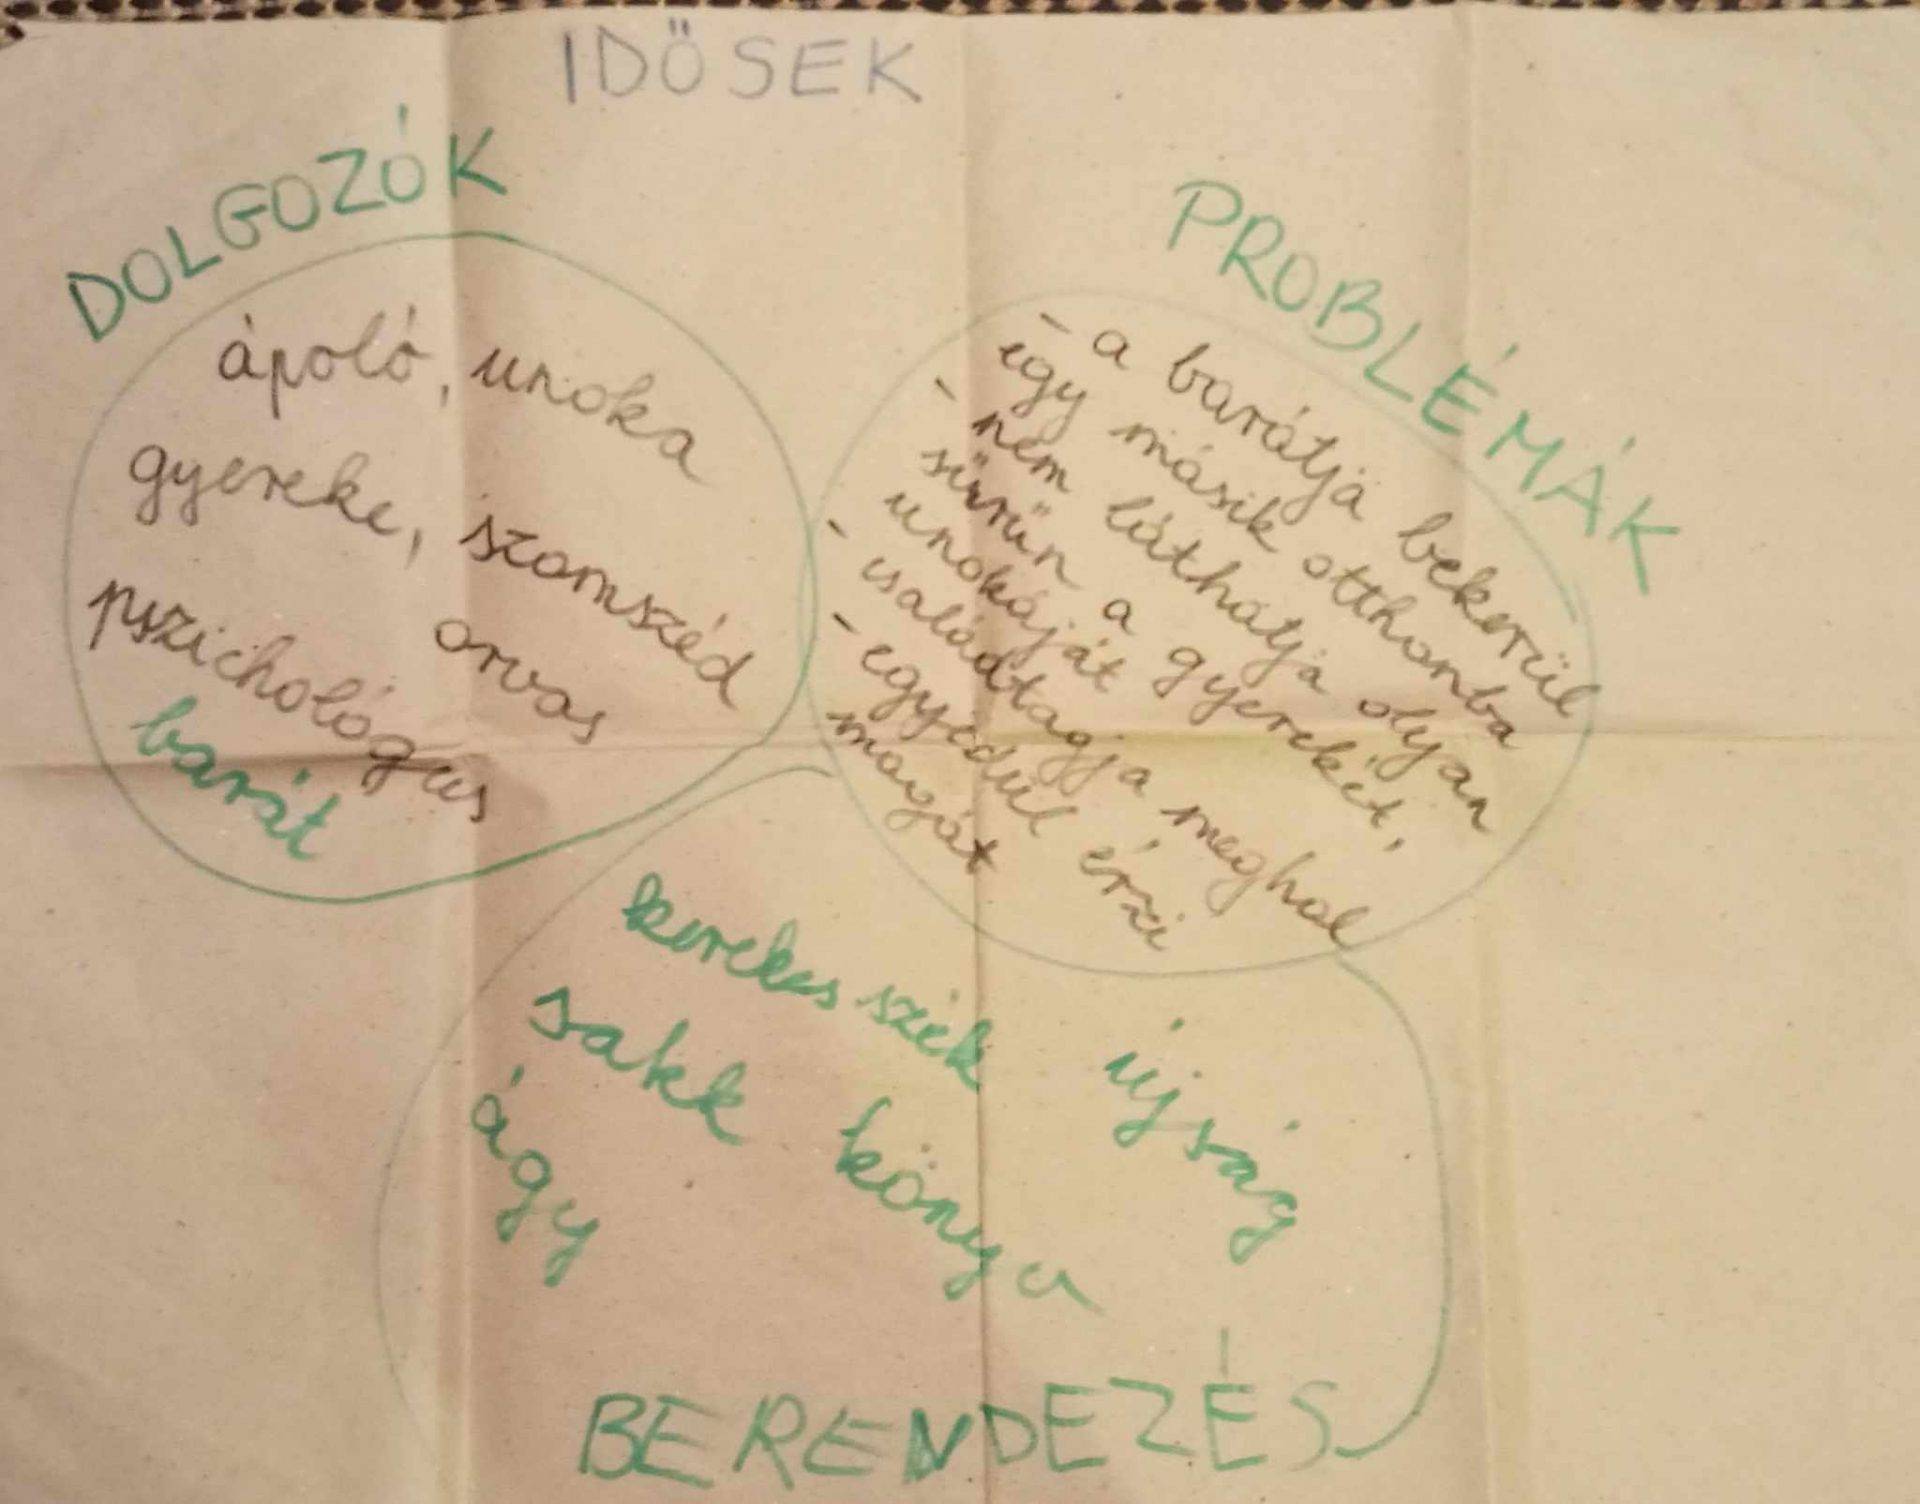 IDŐSEK
DOLGOZÓK
ápoló, unoka
gyereke, szomszéd
orvos
pszichológus
barát
PROBLÉMÁK
- a barátja bekerül
egy másik otthonba
- nem láthatja olyan
sűrűn a gyerekét,
unokáját
- családtagja meghal
- egyedül érzi
magát
kerekes szék
sakk
újság
ágy
könyv
BERENDEZÉS